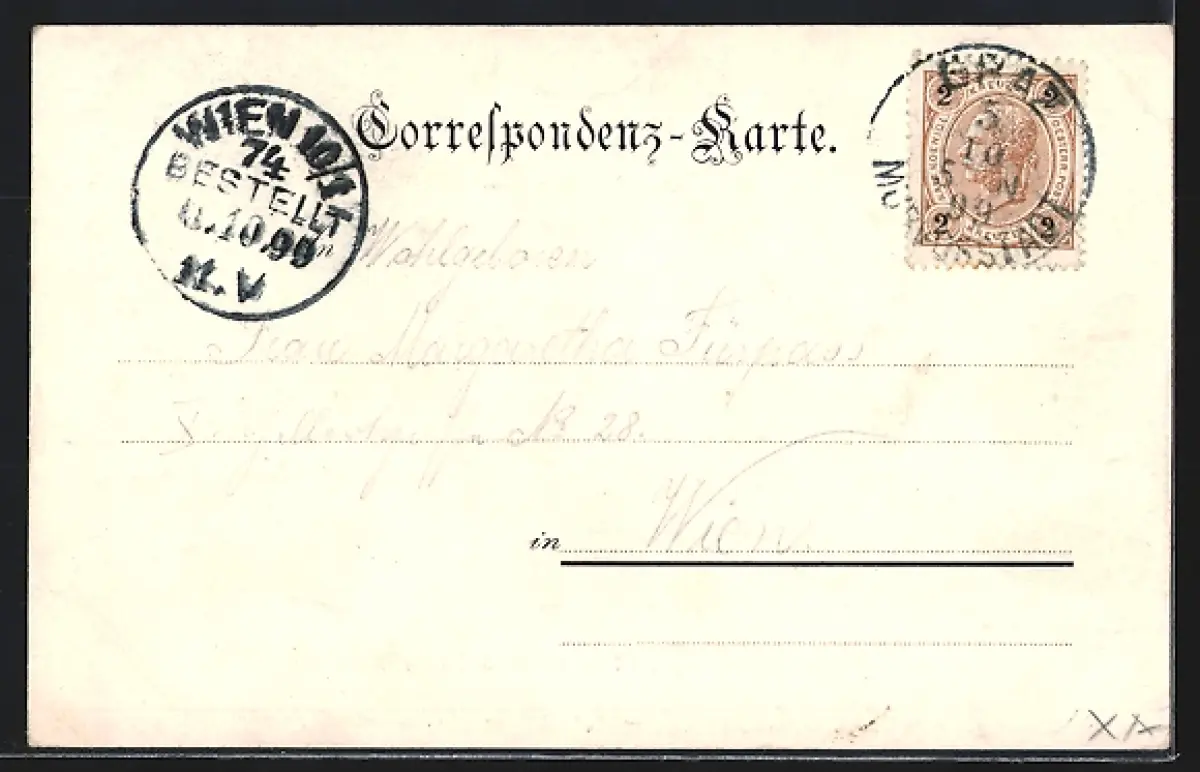 Correspondenz-Karte.
WIEN 10/1
74
BESTELLT
10.99
11.V
GRAZ
5
10
99
2 2
2 2
Wohlgeboren
Frau Margaretha Fürpass
No 28.
in Wien
XA